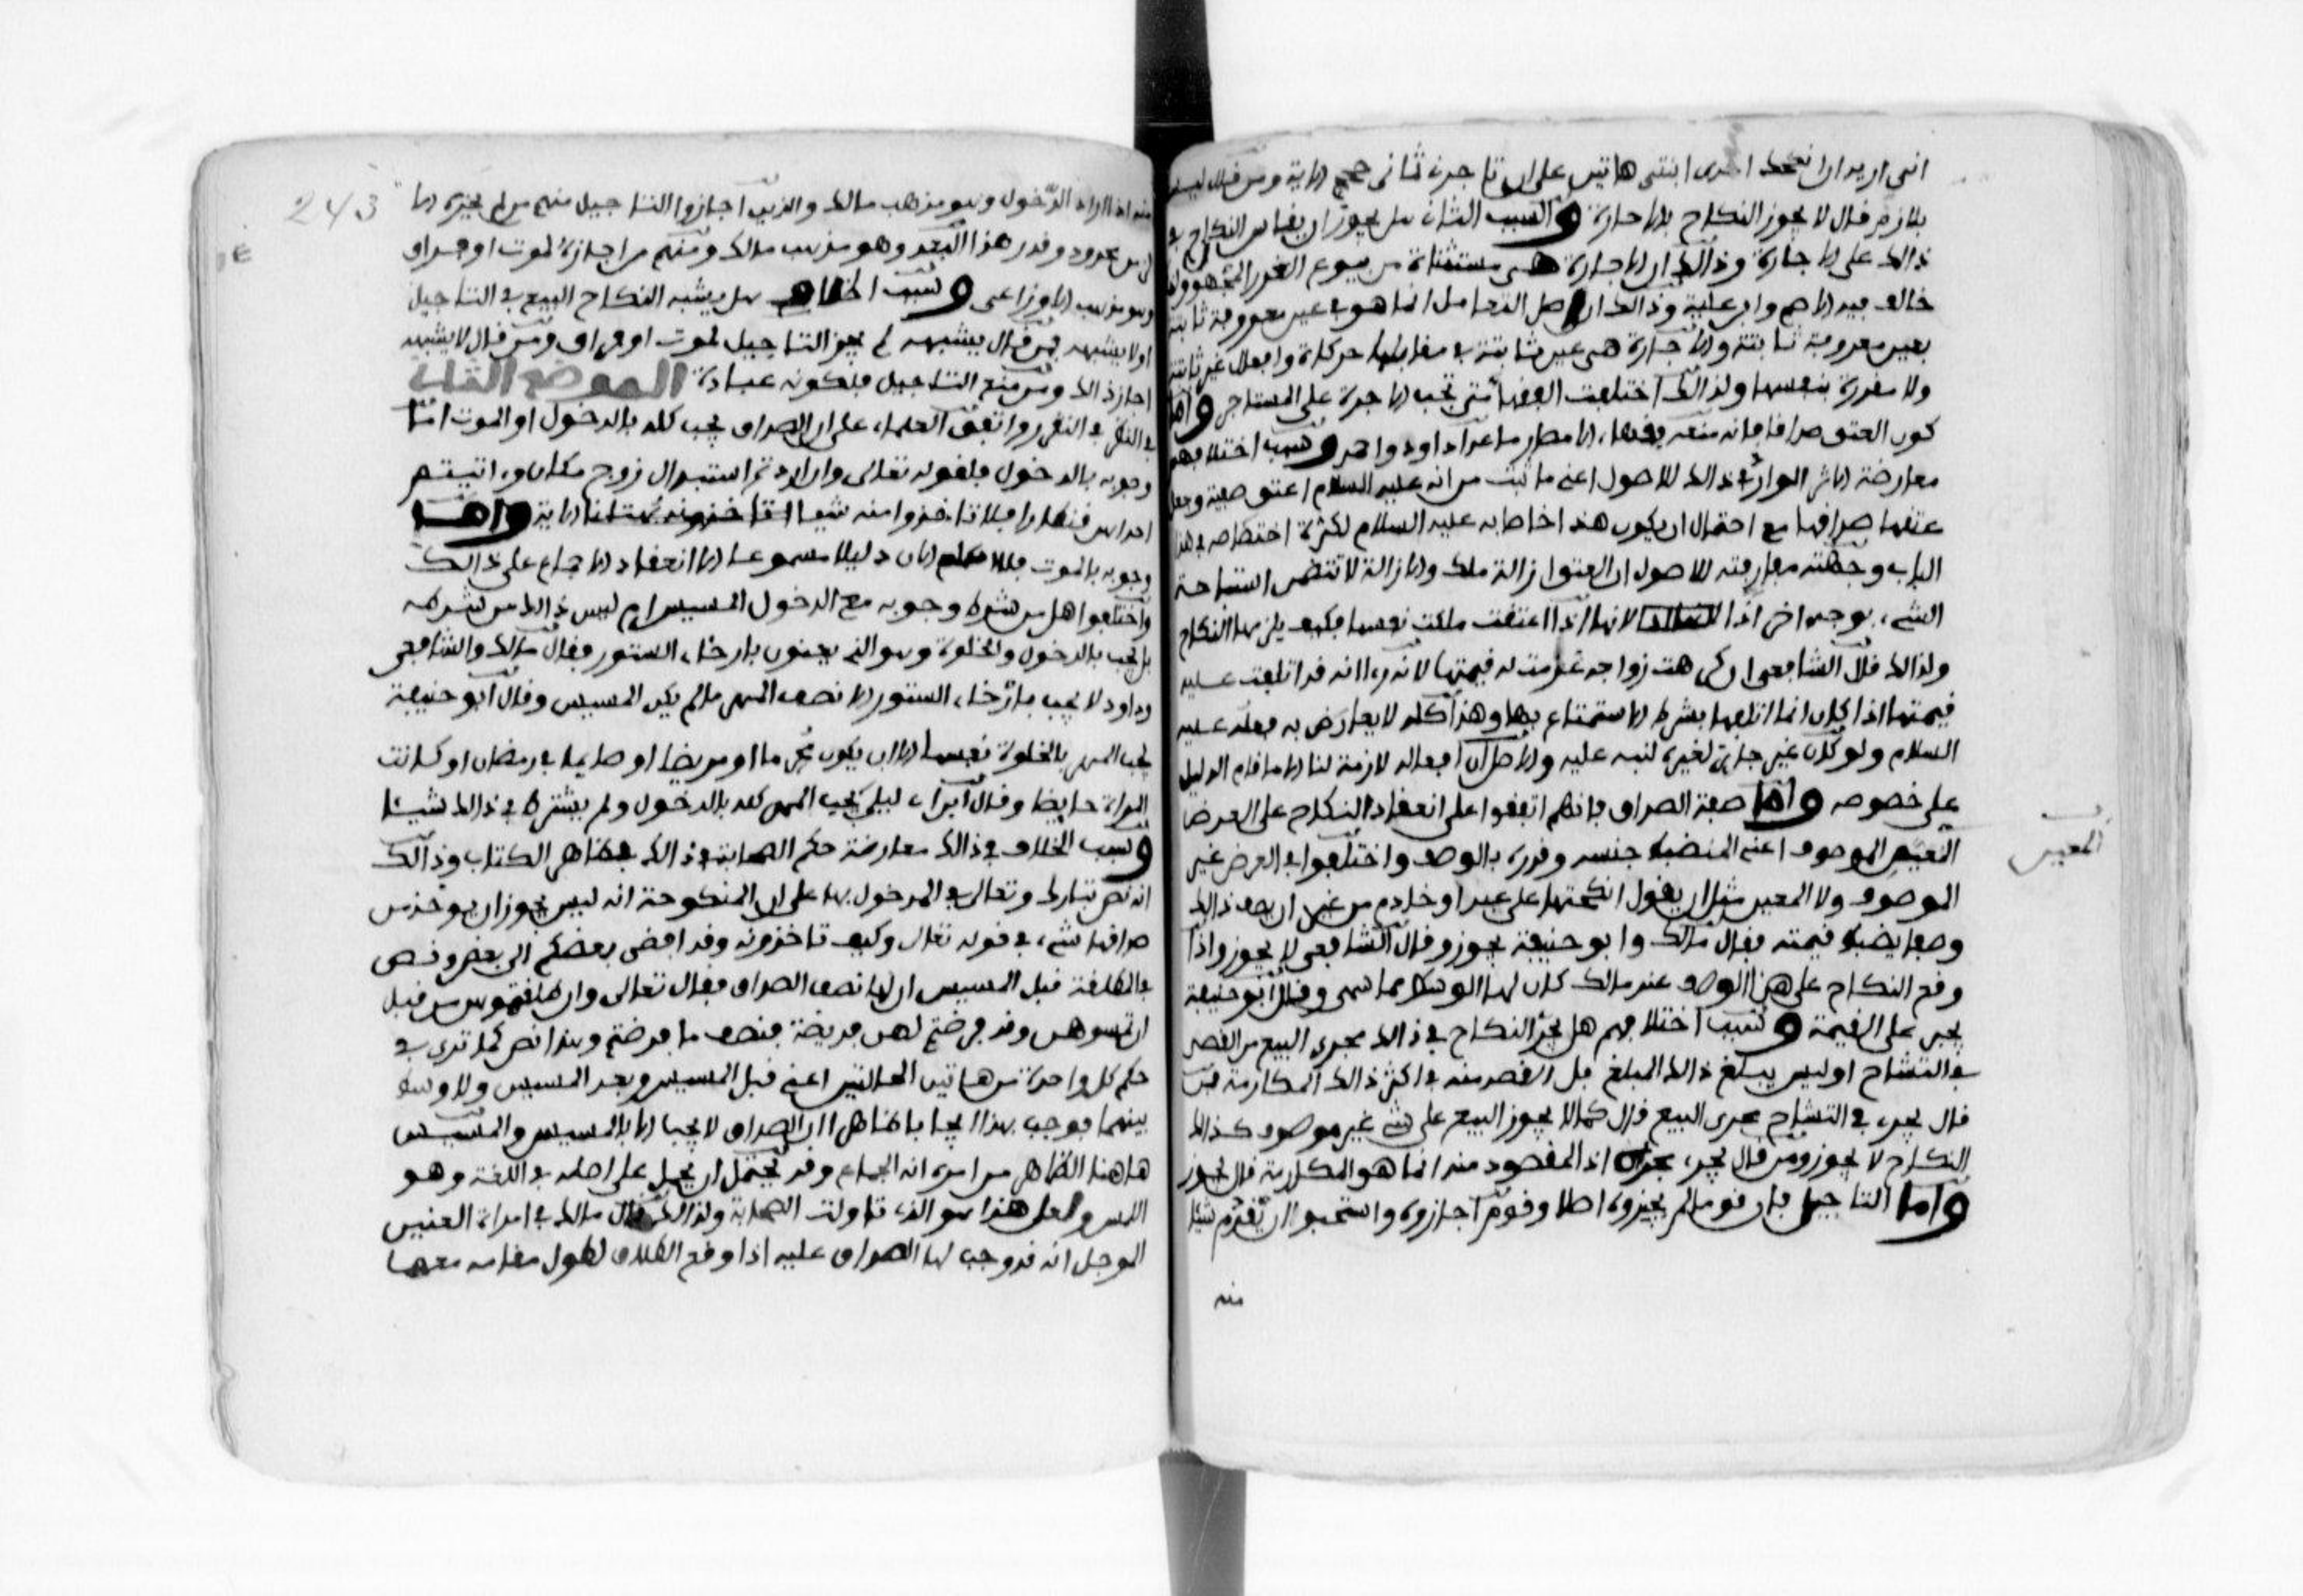 اني اريد ان انكحك احدى ابنتي هاتين على ان تاجرني ثماني حجج الاية ومن قال ليس
بلازم قال لا يجوز النكاح بالاجارة والسبب الثاني هل يجوز ان يقاس النكاح في
ذالك على الاجارة وذالك ان الاجارة هي مستثناة من بيوع الغرر المجهول ولذ
خالف فيه الاصم وابن علية وذالك ان اصل التعامل انما هو في عين معروفة ثابتة
بعين معروفة ثابتة والاجارة هي عين ثابتة في مقابلها حركات وافعال غير ثابتة
ولا مقدرة بنفسها ولذالك اختلف الفقها متى تجب الاجرة على المستاجر واما
كون العتق صداقا فانه منعه فقهاء الامصار ما عدا داود واحمد وسبب اختلافهم
معارضة الاثر الوارد في ذالك للاصول اعني ما ثبت من انه عليه السلام اعتق صفية وجعل
عتقها صداقها مع احتمال ان يكون هذا خاصا به عليه السلام لكثرة اختصاصه في هذا
الباب وجهة مفارقته للاصول ان العتق ازالة ملك والازالة لا تتضمن استباحة
الشيء بوجه اخر اذا لانها اذا اعتقت ملكت نفسها فكيف يلزمها النكاح
ولذالك قال الشافعي ان كرهت زواجه غرمت له قيمتها لانه راا انه قد اتلفت عليه
قيمتها اذا كان انما اتلفها بشرط الاستمتاع بها وهذا كله لا يعارض به فعله عليه
السلام ولو كان غير جائز لغيره لنبه عليه والاصل ان افعاله لازمة لنا الا ما قام الدليل
على خصوصه واما صفة الصداق فانهم اتفقوا على انعقاد النكاح على العرض
المعين الموصوف اعني المنضبط جنسه وقدره بالوصف واختلفوا في العرض غير
الموصوف ولا المعين مثل ان يقول انكحتها على عبد او خادم من غير ان يصف ذالك
وصفا يضبط قيمته فقال مالك وابو حنيفة يجوز وقال الشافعي لا يجوز واذا
وقع النكاح على هذا الوصف عند مالك كان لها الوسط مما سمى وقال ابو حنيفة
يجبر على القيمة وسبب اختلافهم هل يجري النكاح في ذالك مجرى البيع من القصد
في التشاح او ليس يبلغ ذالك المبلغ بل القصد منه في اكثر ذالك المكارمة فمن
قال يجري في التشاح مجرى البيع قال كما لا يجوز البيع على شيء غير موصوف كذالك
النكاح لا يجوز ومن قال يجري مجراه اذ المقصود منه انما هو المكارمة قال يجوز
واما التاجيل فان قوما لم يجيزوه اصلا وقوم اجازوه واستحبوا ان يقدم شيئا
منه
المعين
243
منه اذا اراد الدخول وهو مذهب مالك والذين اجازوا التاجيل منهم من لم يجزه الا
لزمن محدود وقدر هذا البعد وهو مذهب مالك ومنهم من اجازه لموت او فراق
وهو مذهب الاوزاعي وسبب اختلافهم هل يشبه النكاح البيع في التاجيل
او لا يشبهه فمن قال يشبهه لم يجز التاجيل لموت او فراق ومن قال لا يشبهه
اجاز ذالك ومن منع التاجيل فلكونه عبادة الموضع الثاني
في النظر في التقرر واتفق العلماء على ان الصداق يجب كله بالدخول او الموت اما
وجوبه بالدخول فلقوله تعالى وان اردتم استبدال زوج مكان زوج واتيتم
احداهن قنطارا فلا تاخذوا منه شيئا اتاخذونه بهتانا الاية واما
وجوبه بالموت فلا اعلم الان دليلا مسموعا الا انعقاد الاجماع على ذالك
واختلفوا هل من شرط وجوبه مع الدخول المسيس ام ليس ذالك من شرطه
بل يجب بالدخول والخلوة وهو الذي يعنون بارخاء الستور فقال مالك والشافعي
وداود لا يجب بارخاء الستور الا نصف المهر ما لم يكن المسيس وقال ابو حنيفة
يجب المهر بالخلوة نفسها الا ان يكون محرما او مريضا او صايما في رمضان او كانت
المراة حايضا وقال ابن ابي ليلى يجب المهر كله بالدخول ولم يشترط في ذالك شيئا
وسبب الخلاف في ذالك معارضة حكم الصحابة في ذالك لظاهر الكتاب وذالك
انه نص تبارك وتعالى في المدخول بها على ان المنكوحة انه ليس يجوز ان يوخذ من
صداقها شيء في قوله تعالى وكيف تاخذونه وقد افضى بعضكم الى بعض ونص
في المطلقة قبل المسيس ان لها نصف الصداق فقال تعالى وان طلقتموهن من قبل
ان تمسوهن وقد فرضتم لهن فريضة فنصف ما فرضتم وهذا نص كما ترى في
حكم كل واحدة من هاتين الحالتين اعني قبل المسيس وبعد المسيس ولا وسط
بينهما فوجب بهذا ايجابا ظاهرا ان الصداق لا يجب الا بالمسيس والمسيس
هاهنا الظاهر من امره انه الجماع وقد يحتمل ان يحمل على اصله في اللغة وهو
اللمس ولعل هذا هو الذي تاولت الصحابة ولذالك قال مالك في امراة العنين
الموجل انه قد وجب لها الصداق عليه اذا وقع الطلاق لطول مقامه معها